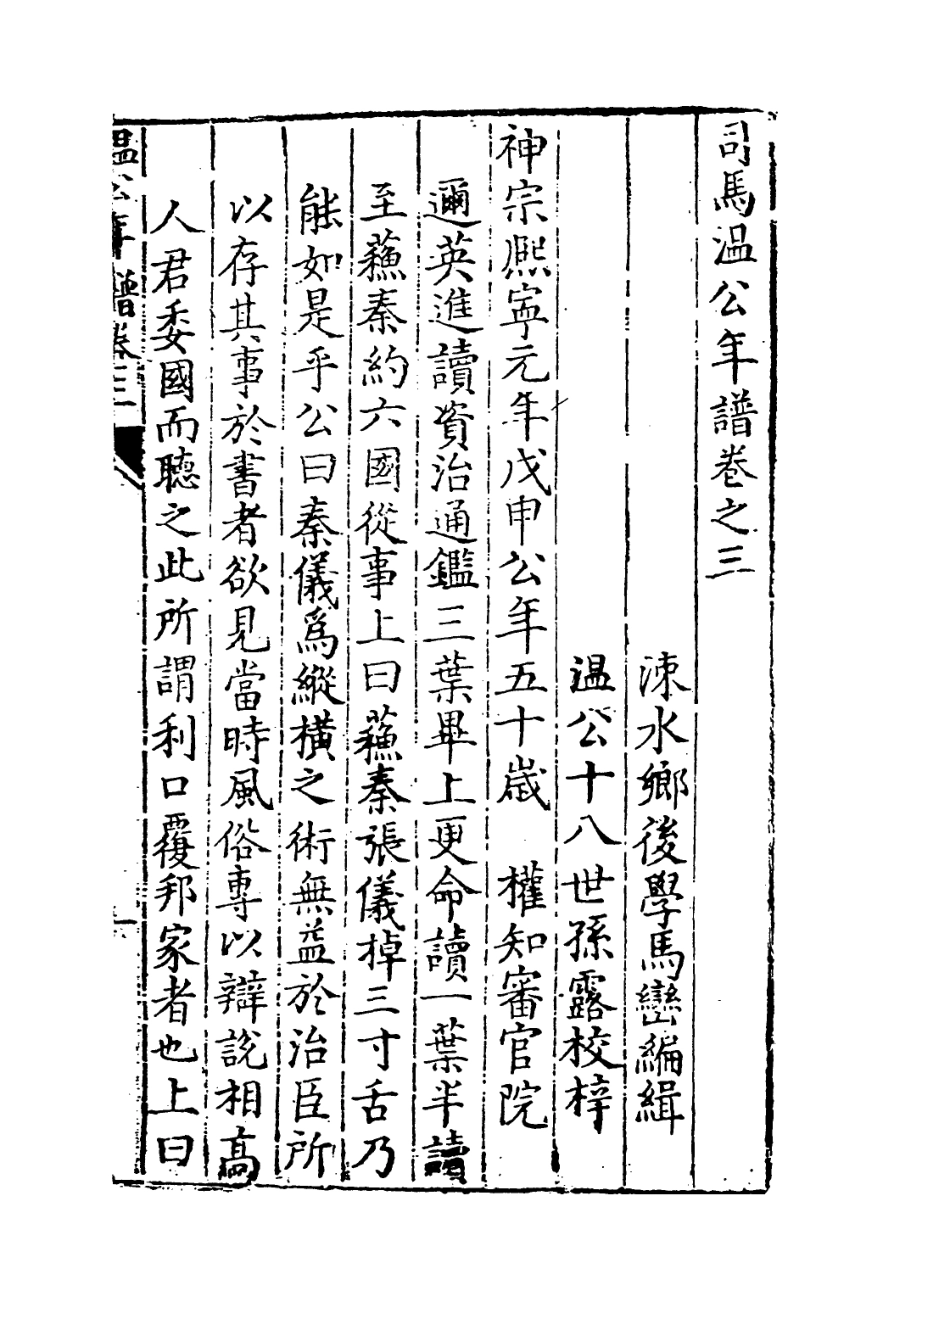 司馬温公年譜卷之三
涑水鄉後學馬巒編緝
温公十八世孫露校梓
神宗熈寧元年戊申公年五十歲　權知審官院
邇英進讀資治通鑑三葉畢上更命讀一葉半讀
至蘓秦約六國從事上曰蘓秦張儀掉三寸舌乃
能如是乎公曰秦儀爲縱横之術無益於治臣所
以存其事於書者欲見當時風俗專以辯說相高
人君委國而聽之此所謂利口覆邦家者也上曰
温公年譜卷三
一